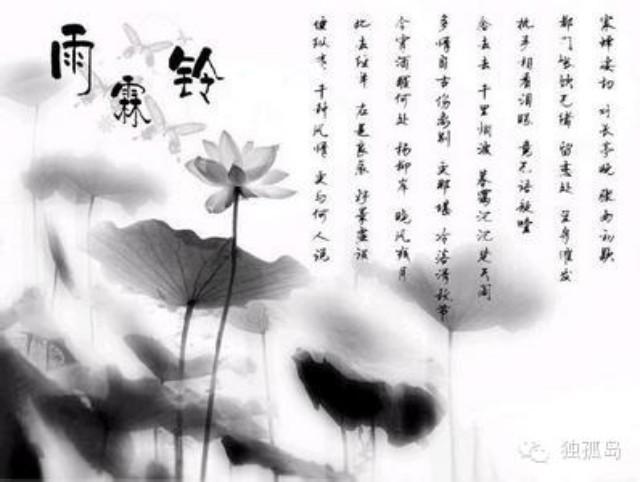 雨霖铃
寒蝉凄切 对长亭晚 骤雨初歇
都门帐饮无绪 留恋处 兰舟催发
执手相看泪眼 竟无语凝噎
念去去 千里烟波 暮霭沉沉楚天阔
多情自古伤离别 更那堪 冷落清秋节
今宵酒醒何处 杨柳岸 晓风残月
此去经年 应是良辰 好景虚设
便纵有 千种风情 更与何人说
独孤岛